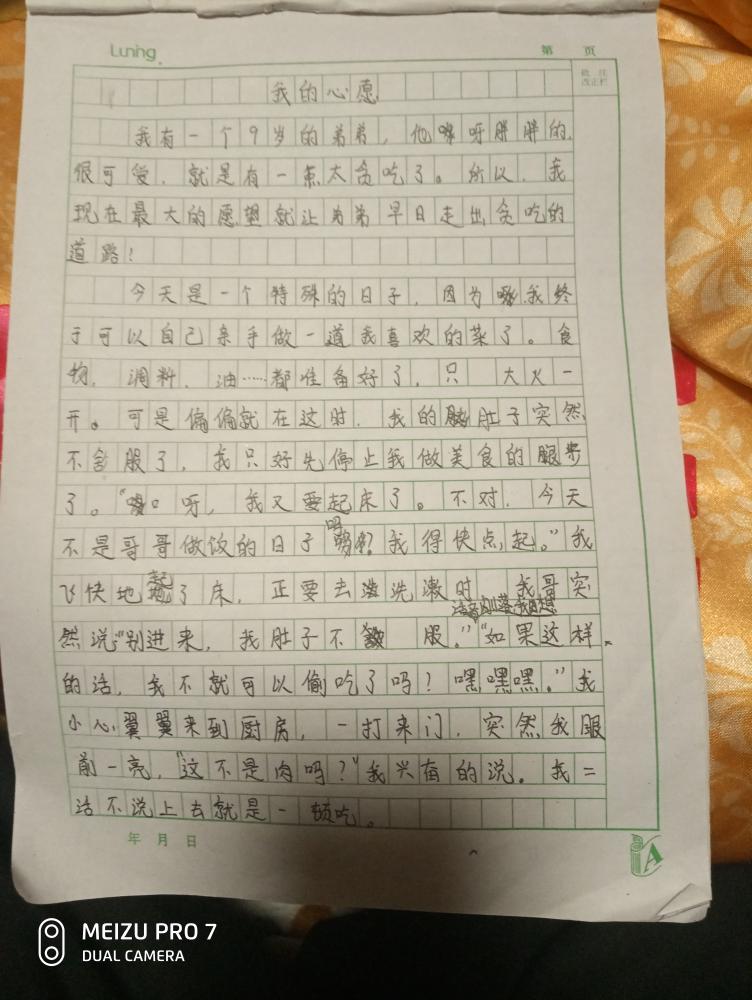 Luning
第 页
批 注
改正栏
我的心愿
我有一个9岁的弟弟，他呀胖胖的，
很可爱，就是有一点太贪吃了。所以，我
现在最大的愿望就让弟弟早日走出贪吃的
道路！
今天是一个特殊的日子，因为我终
于可以自己亲手做一道我喜欢的菜了。食
物，调料，油……都准备好了，只 大火一
开。可是偏偏就在这时，我的肚子突然
不舍服了，我只好先停止我做美食的腿步
了。“ 呀，我又要起床了。不对，今天
不是哥哥做饭的日子吗？我得快点起。”我
飞快地起了床，正要去洗漱时，我哥突
然说“别进来，我肚子不 服。”“如果这样
话音刚落我想
的话，我不就可以偷吃了吗？嘿嘿嘿。”我
小心翼翼来到厨房，一打来门，突然我眼
前一亮，“这不是肉吗？”我兴奋的说。我二
话不说上去就是一顿吃。
年 月 日
MEIZU PRO 7
DUAL CAMERA